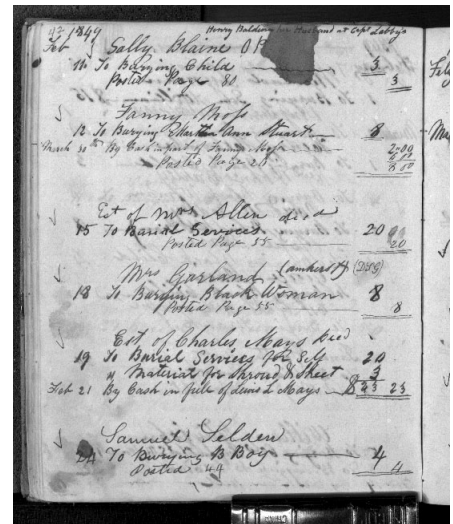 1849 Henry Balding her Husband at Capt Labbys
Feb Sally Blaine
11 To Burying Child 3
Posted Page 80 3
Fanny Moss
12 To Burying Martha Ann Stuart 8
March By Cash in part of Fanny Moss 2.00
Posted Page 28 6 00
8 00
Est of Mrs Allen died
15 To Burial Services 20
Posted Page 55 20
Mrs Garland (amherst)
18 To Burying Black Woman 8
Posted Page 55 8
Est. of Charles Mays Died
19 To Burial Services for Self 20
" Material for Shroud & Sheet 3
Feb 21 By Cash in full of Lewis L Mays $23 23
Samuel Selden
24 To Burying B Boy 4
Posted 44 4